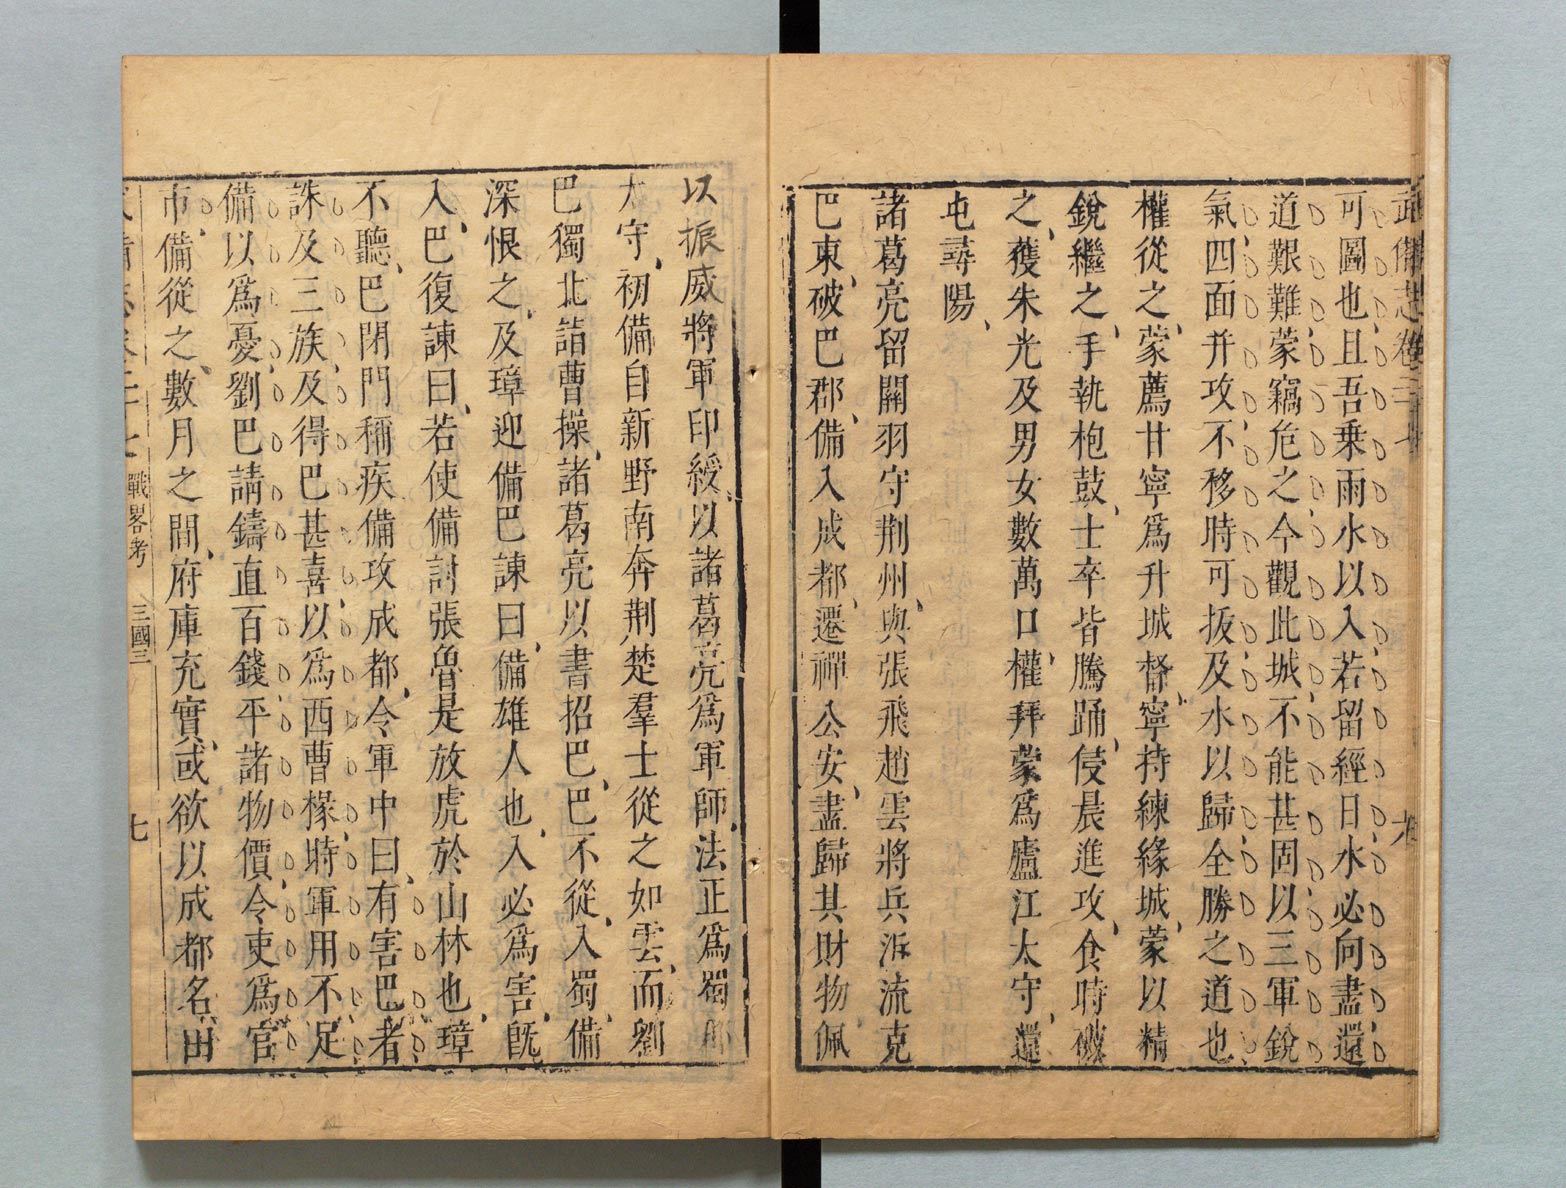 武備志卷二十七
九
可圖也且吾乗雨水以入若留經日水必向盡還
道艱難蒙竊危之今觀此城不能甚固以三軍銳
氣四面并攻不移時可拔及水以歸全勝之道也
權從之蒙薦甘寧爲升城督寧持練緣城蒙以精
銳繼之手執枹鼓士卒皆騰踊侵晨進攻食時破
之獲朱光及男女數萬口權拜蒙爲廬江太守還
屯尋陽
諸葛亮留關羽守荆州與張飛趙雲將兵泝流克
巴東破巴郡備入成都遷禪公安盡歸其財物佩
以振威將軍印綬以諸葛亮爲軍師法正爲蜀郡
太守初備自新野南奔荆楚羣士從之如雲而劉
巴獨北詣曹操諸葛亮以書招巴巴不從入蜀備
深恨之及璋迎備巴諫曰備雄人也入必爲害旣
入巴復諫曰若使備討張魯是放虎於山林也璋
不聽巴閉門稱疾備攻成都令軍中曰有害巴者
誅及三族及得巴甚喜以爲西曹掾時軍用不足
備以爲憂劉巴請鑄直百錢平諸物價令吏爲官
市備從之數月之間府庫充實或欲以成都名田
武備志卷二十七 戰畧考 三國三
七